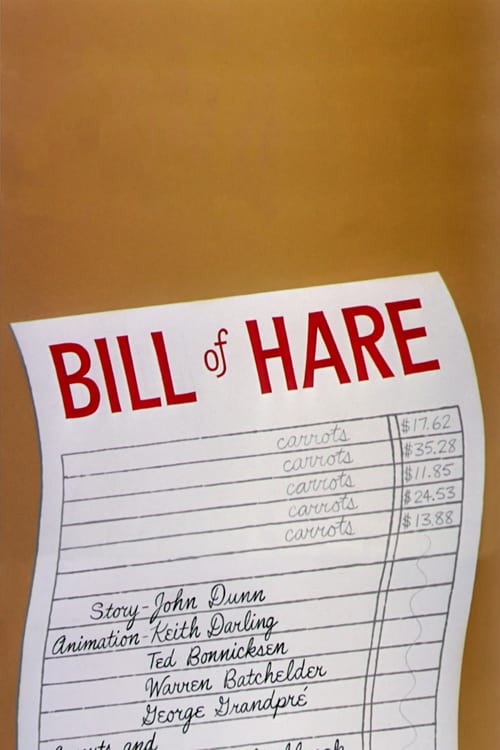 BILL of HARE
carrots $17.62
carrots $35.28
carrots $11.85
carrots $24.53
carrots $13.88
Story-John Dunn
Animation-Keith Darling
Ted Bonnicksen
Warren Batchelder
George Grandpré
and